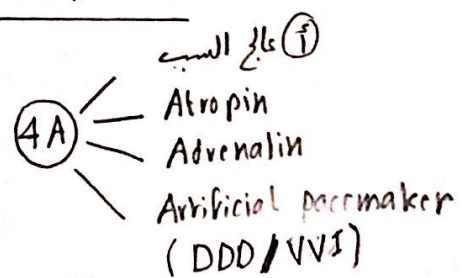 ① أ عالج السبب
4A
Atropin
Adrenalin
Artificial pacemaker
(DDD/VVI)